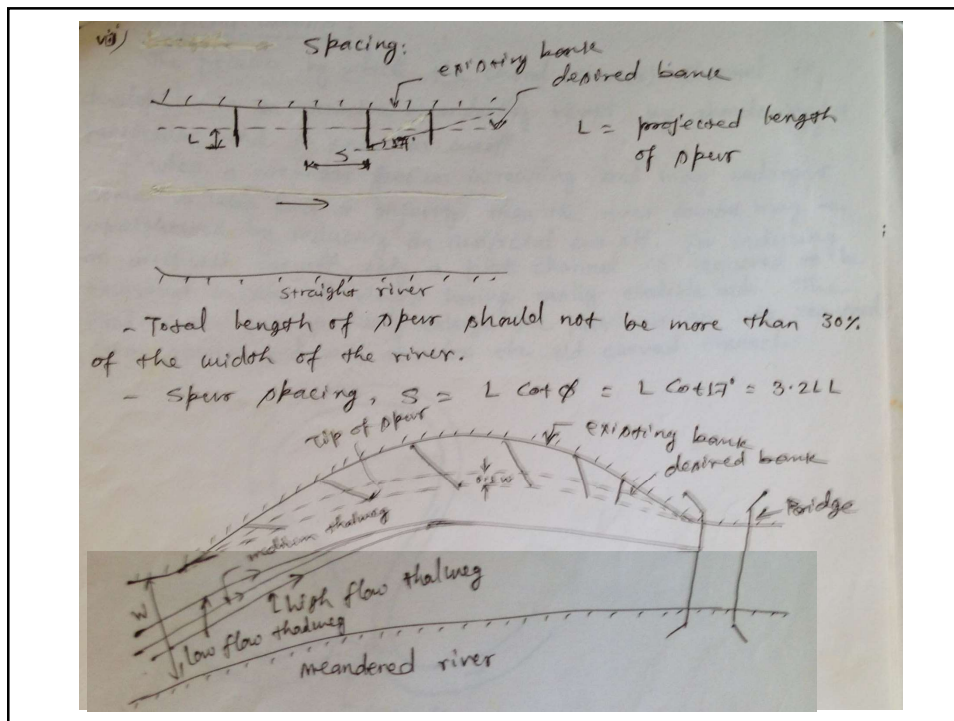 viii) Spacing:
existing bank
desired bank
L
S
17°
L = projected length
of spur
straight river
- Total length of spur should not be more than 30%
of the width of the river.
- Spur spacing, S = L Cot ϕ = L Cot 17° = 3.2LL
Tip of spur
existing bank
desired bank
Bridge
medium thalweg
W
High flow thalweg
low flow thalweg
meandered river